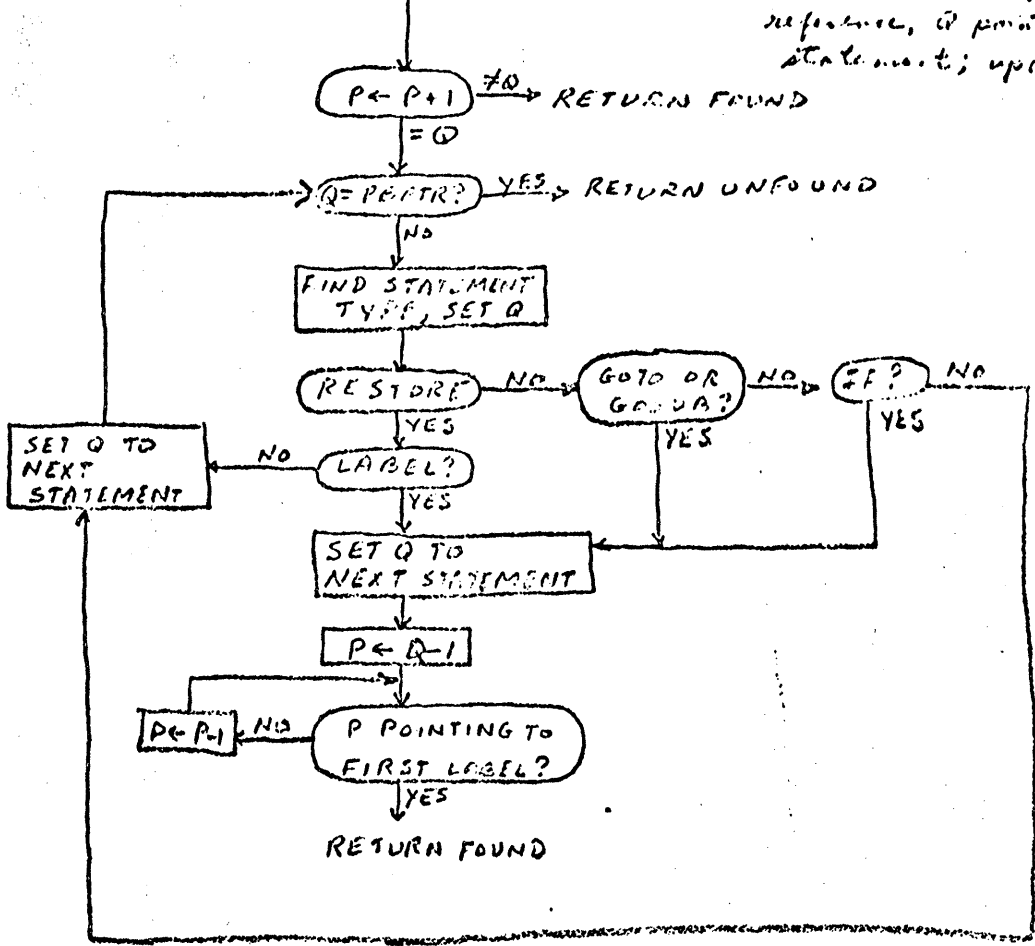 reference, Q
statement;
P ← P+1
≠Q
RETURN FOUND
= Q
Q=
YES
RETURN UNFOUND
NO
FIND STATEMENT
TYPE, SET Q
RESTORE
NO
GOTO OR
GOSUB?
NO
IF?
NO
YES
YES
YES
SET Q TO
NEXT
STATEMENT
NO
LABEL?
YES
SET Q TO
NEXT STATEMENT
P ← Q-1
P ← P-1
NO
P POINTING TO
FIRST LABEL?
YES
RETURN FOUND